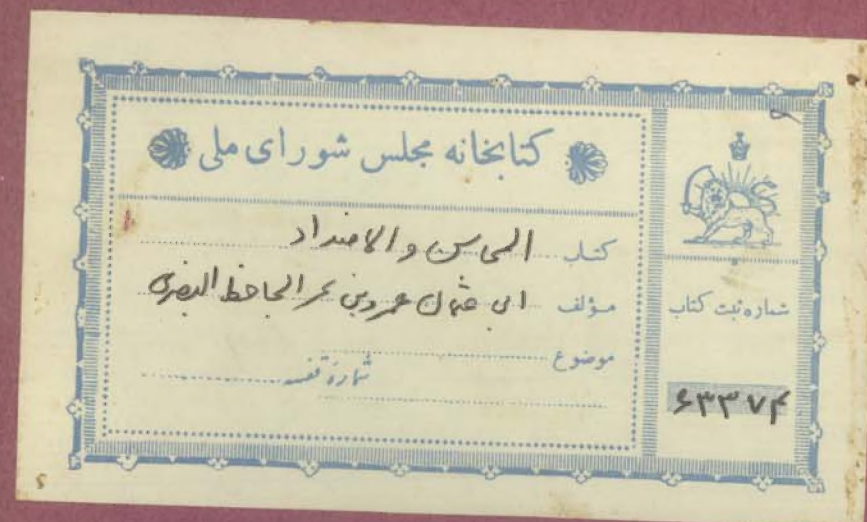 کتابخانه مجلس شورای ملی
کتاب المحاسن و الاضداد
مؤلف ابی عثمان عمروبن بحر الجاحظ البصری
موضوع
شماره قفسه
شماره ثبت کتاب
۶۳۳۷۴